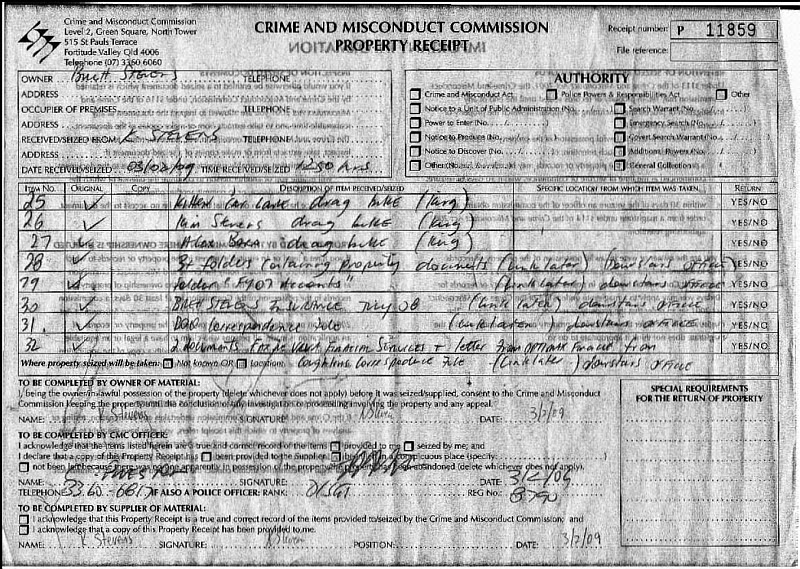 Crime and Misconduct Commission
Level 2, Green Square, North Tower
515 St Pauls Terrace
Fortitude Valley Qld 4006
Telephone (07) 3360 6060
CRIME AND MISCONDUCT COMMISSION
PROPERTY RECEIPT
Receipt number: P 11859
File reference:
OWNER Brett Stevens TELEPHONE
ADDRESS
OCCUPIER OF PREMISES TELEPHONE
ADDRESS
RECEIVED/SEIZED FROM K STEVENS TELEPHONE
ADDRESS
DATE RECEIVED/SEIZED 03/02/09 TIME RECEIVED/SEIZED 1250 hrs
AUTHORITY
Crime and Misconduct Act Police Powers & Responsibilities Act Other
Notice to a Unit of Public Administration (No. Search Warrant (No.
Power to Enter (No. Emergency Search (No.
Notice to Produce (No. Covert Search Warrant (No.
Notice to Discover (No. Additional Powers (No.
Other (No. General Collection (
ITEM NO. ORIGINAL COPY DESCRIPTION OF ITEM RECEIVED/SEIZED SPECIFIC LOCATION FROM WHICH ITEM WAS TAKEN RETURN
25 ✓ drag bike (King) YES/NO
26 ✓ Stevens drag bike (King) YES/NO
27 ✓ drag bike (King) YES/NO
28 ✓ folder containing property documents (Linklater) Downstairs office YES/NO
29 ✓ Folder "FY07 Accounts" (Linklater) downstairs office YES/NO
30 ✓ BRETT STEVENS INSURANCE July 08 (Linklater) downstairs office YES/NO
31. ✓ Correspondence file (Linklater) downstairs office YES/NO
32 ✓ 2 documents FINANCIAL SERVICES + letter from OPTIMAR Finance from YES/NO
Where property seized will be taken: Not known OR Location: Correspondence File (Linklater) downstairs office
TO BE COMPLETED BY OWNER OF MATERIAL:
I, being the owner/in lawful possession of the property (delete whichever does not apply) before it was seized/supplied, consent to the Crime and Misconduct
Commission keeping the property until the conclusion of any investigation or proceeding involving the property and any appeal.
NAME: K Stevens SIGNATURE: K Stevens DATE: 3/2/09
SPECIAL REQUIREMENTS
FOR THE RETURN OF PROPERTY
TO BE COMPLETED BY CMC OFFICER:
I acknowledge that the items listed herein are a true and correct record of the items provided to me seized by me; and
I declare that a copy of this Property Receipt has been provided to the Supplier left in a conspicuous place (specify: )
not been left because there was no-one apparently in possession of the property/the property has been abandoned (delete whichever does not apply).
NAME: SIGNATURE: DATE: 3/2/09
TELEPHONE: 3360-6817 IF ALSO A POLICE OFFICER: RANK: D/SGT REG NO.: 8790
TO BE COMPLETED BY SUPPLIER OF MATERIAL:
I acknowledge that this Property Receipt is a true and correct record of the items provided to/seized by the Crime and Misconduct Commission; and
I acknowledge that a copy of this Property Receipt has been provided to me.
NAME: K Stevens SIGNATURE: K Stevens POSITION: DATE: 3/2/09